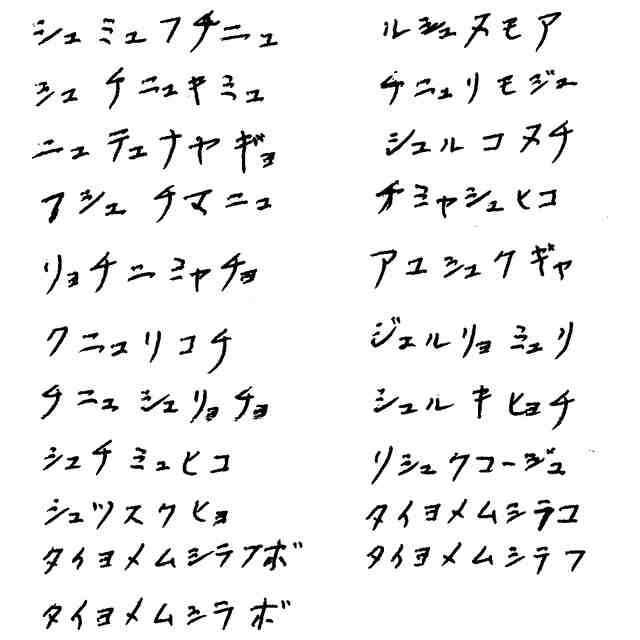 シュミュフチニュ
シュチニュキミュ
ニュテュナヤギョ
フシュチマニュ
リョチニミャチョ
クニュリコチ
チニュシュリョチョ
シュチミュヒコ
シュヅスクヒョ
タイヨメムシラブボ
タイヨメムシラボ
ルシュヌモア
チニュリモジュー
シュルコヌチ
チミャシュヒコ
アユシュクギャ
ジェルリョミュリ
シュルキヒョチ
リシュクコージュ
タイヨメムシラコ
タイヨメムシラフ